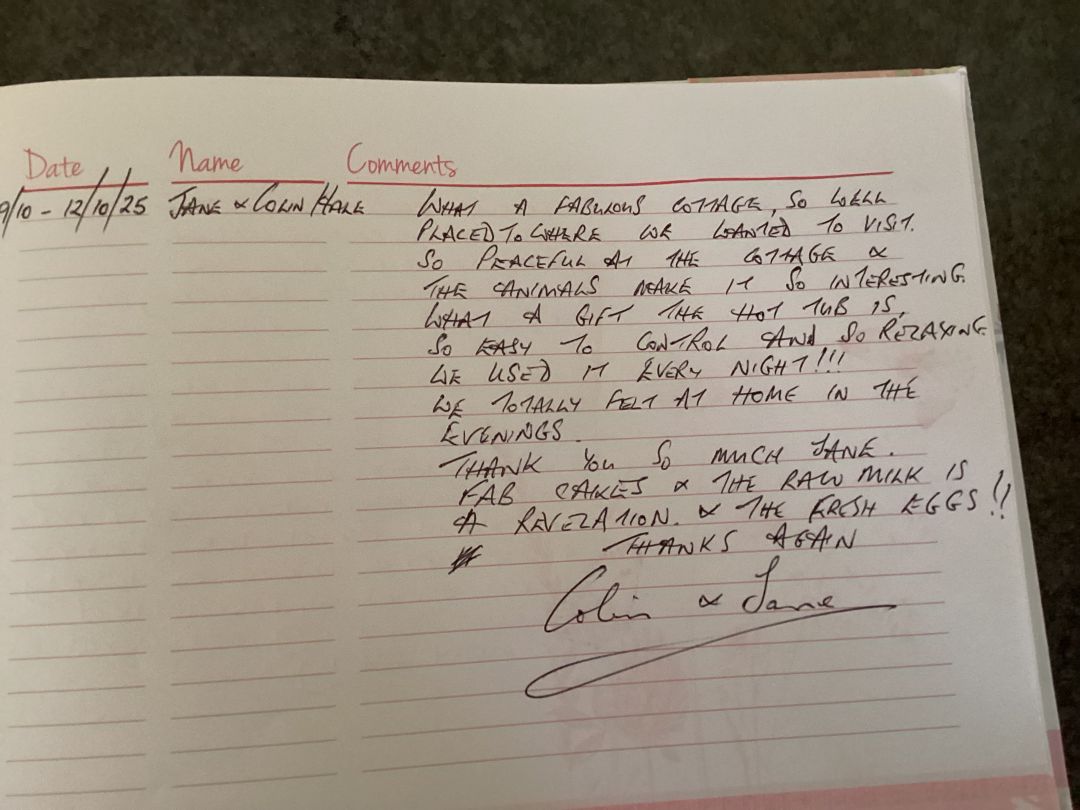 Date Name Comments
9/10 - 12/10/25 JANE & COLIN HALE WHAT A FABULOUS COTTAGE, SO WELL
PLACED TO WHERE WE WANTED TO VISIT.
SO PEACEFUL AT THE COTTAGE &
THE ANIMALS MAKE IT SO INTERESTING.
WHAT A GIFT THE HOT TUB IS,
SO EASY TO CONTROL AND SO RELAXING
WE USED IT EVERY NIGHT!!!
WE TOTALLY FELT AT HOME IN THE
EVENINGS.
THANK YOU SO MUCH JANE.
FAB CAKES & THE RAW MILK IS
A REVELATION. & THE FRESH EGGS!!
THANKS AGAIN
Colin & Jane